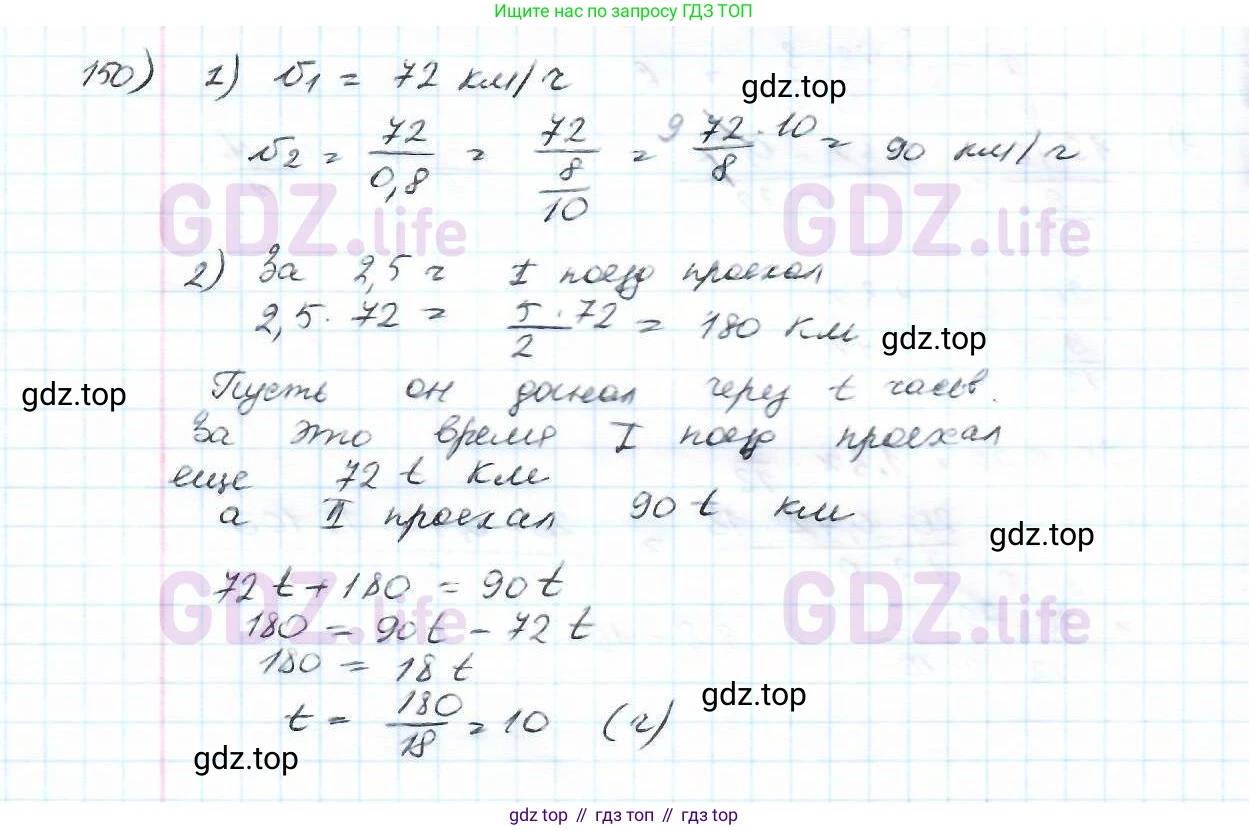 Ищите нас по запросу ГДЗ ТОП
150) 1) v₁ = 72 км/ч
gdz.top
v₂ = 72/0,8 = 72/(8/10) = 9 72·10/8 = 90 км/ч
GDZ.life GDZ.life
2) За 2,5 ч I поезд проехал
2,5 · 72 = 5·72/2 = 180 км
gdz.top
gdz.top
Пусть он догнал через t часов.
За это время I поезд проехал
еще 72 t км
а II проехал 90 t км
gdz.top
72 t + 180 = 90 t
GDZ.life GDZ.life
180 = 90t - 72 t
180 = 18 t
gdz.top
t = 180/18 = 10 (ч)
gdz.top
gdz.top // гдз топ // gdz.top